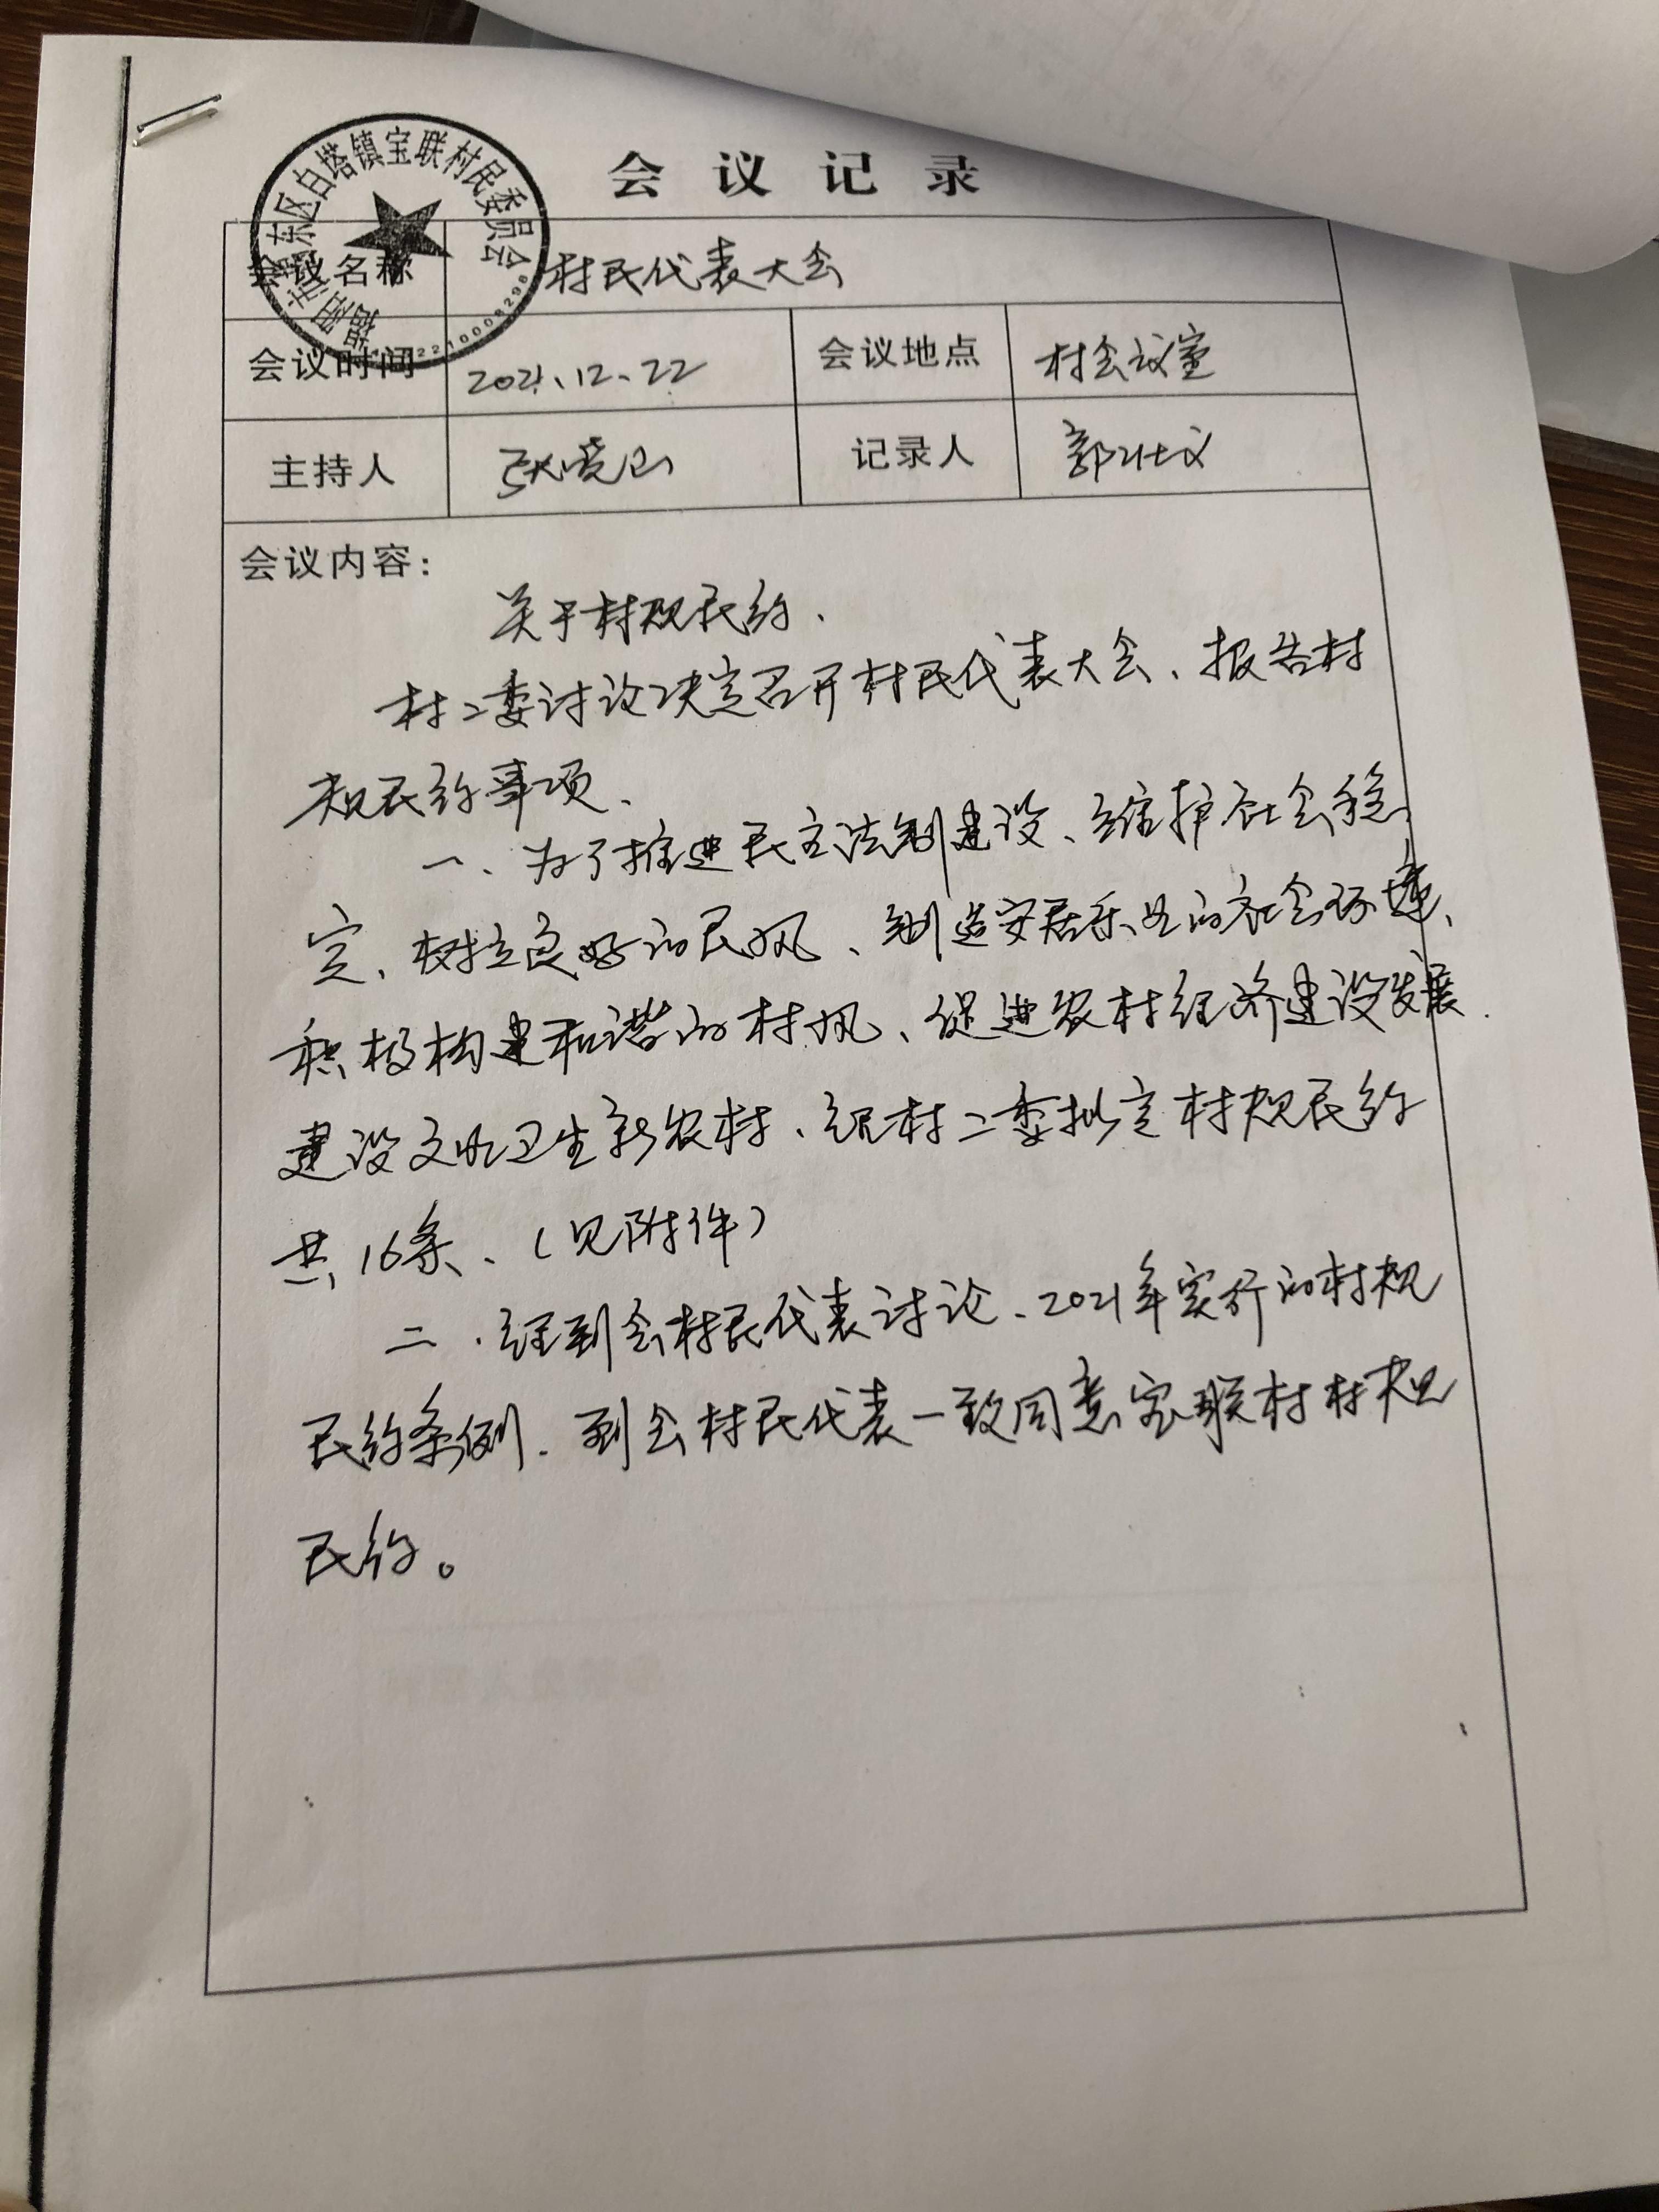 会议记录
揭阳市揭东区白塔镇宝联村民委员会
会议名称 村民代表大会
会议时间 2021、12、22 会议地点 村会议室
主持人 记录人 郭仕文
会议内容:
关于村规民约.
村二委讨议决定召开村民代表大会、报告村
规民约事项、
一、为了推进民主法制建设、维护社会稳
定、树立良好的民风、制造安居乐业的社会环境、
积极构建和谐的村风、促进农村经济建设发展.
建设文明卫生新农村、经村二委拟定村规民约
共16条、(见附件)
二.经到会村民代表讨论、2021年实行的村规
民约条例.到会村民代表一致同意宝联村村规
民约。